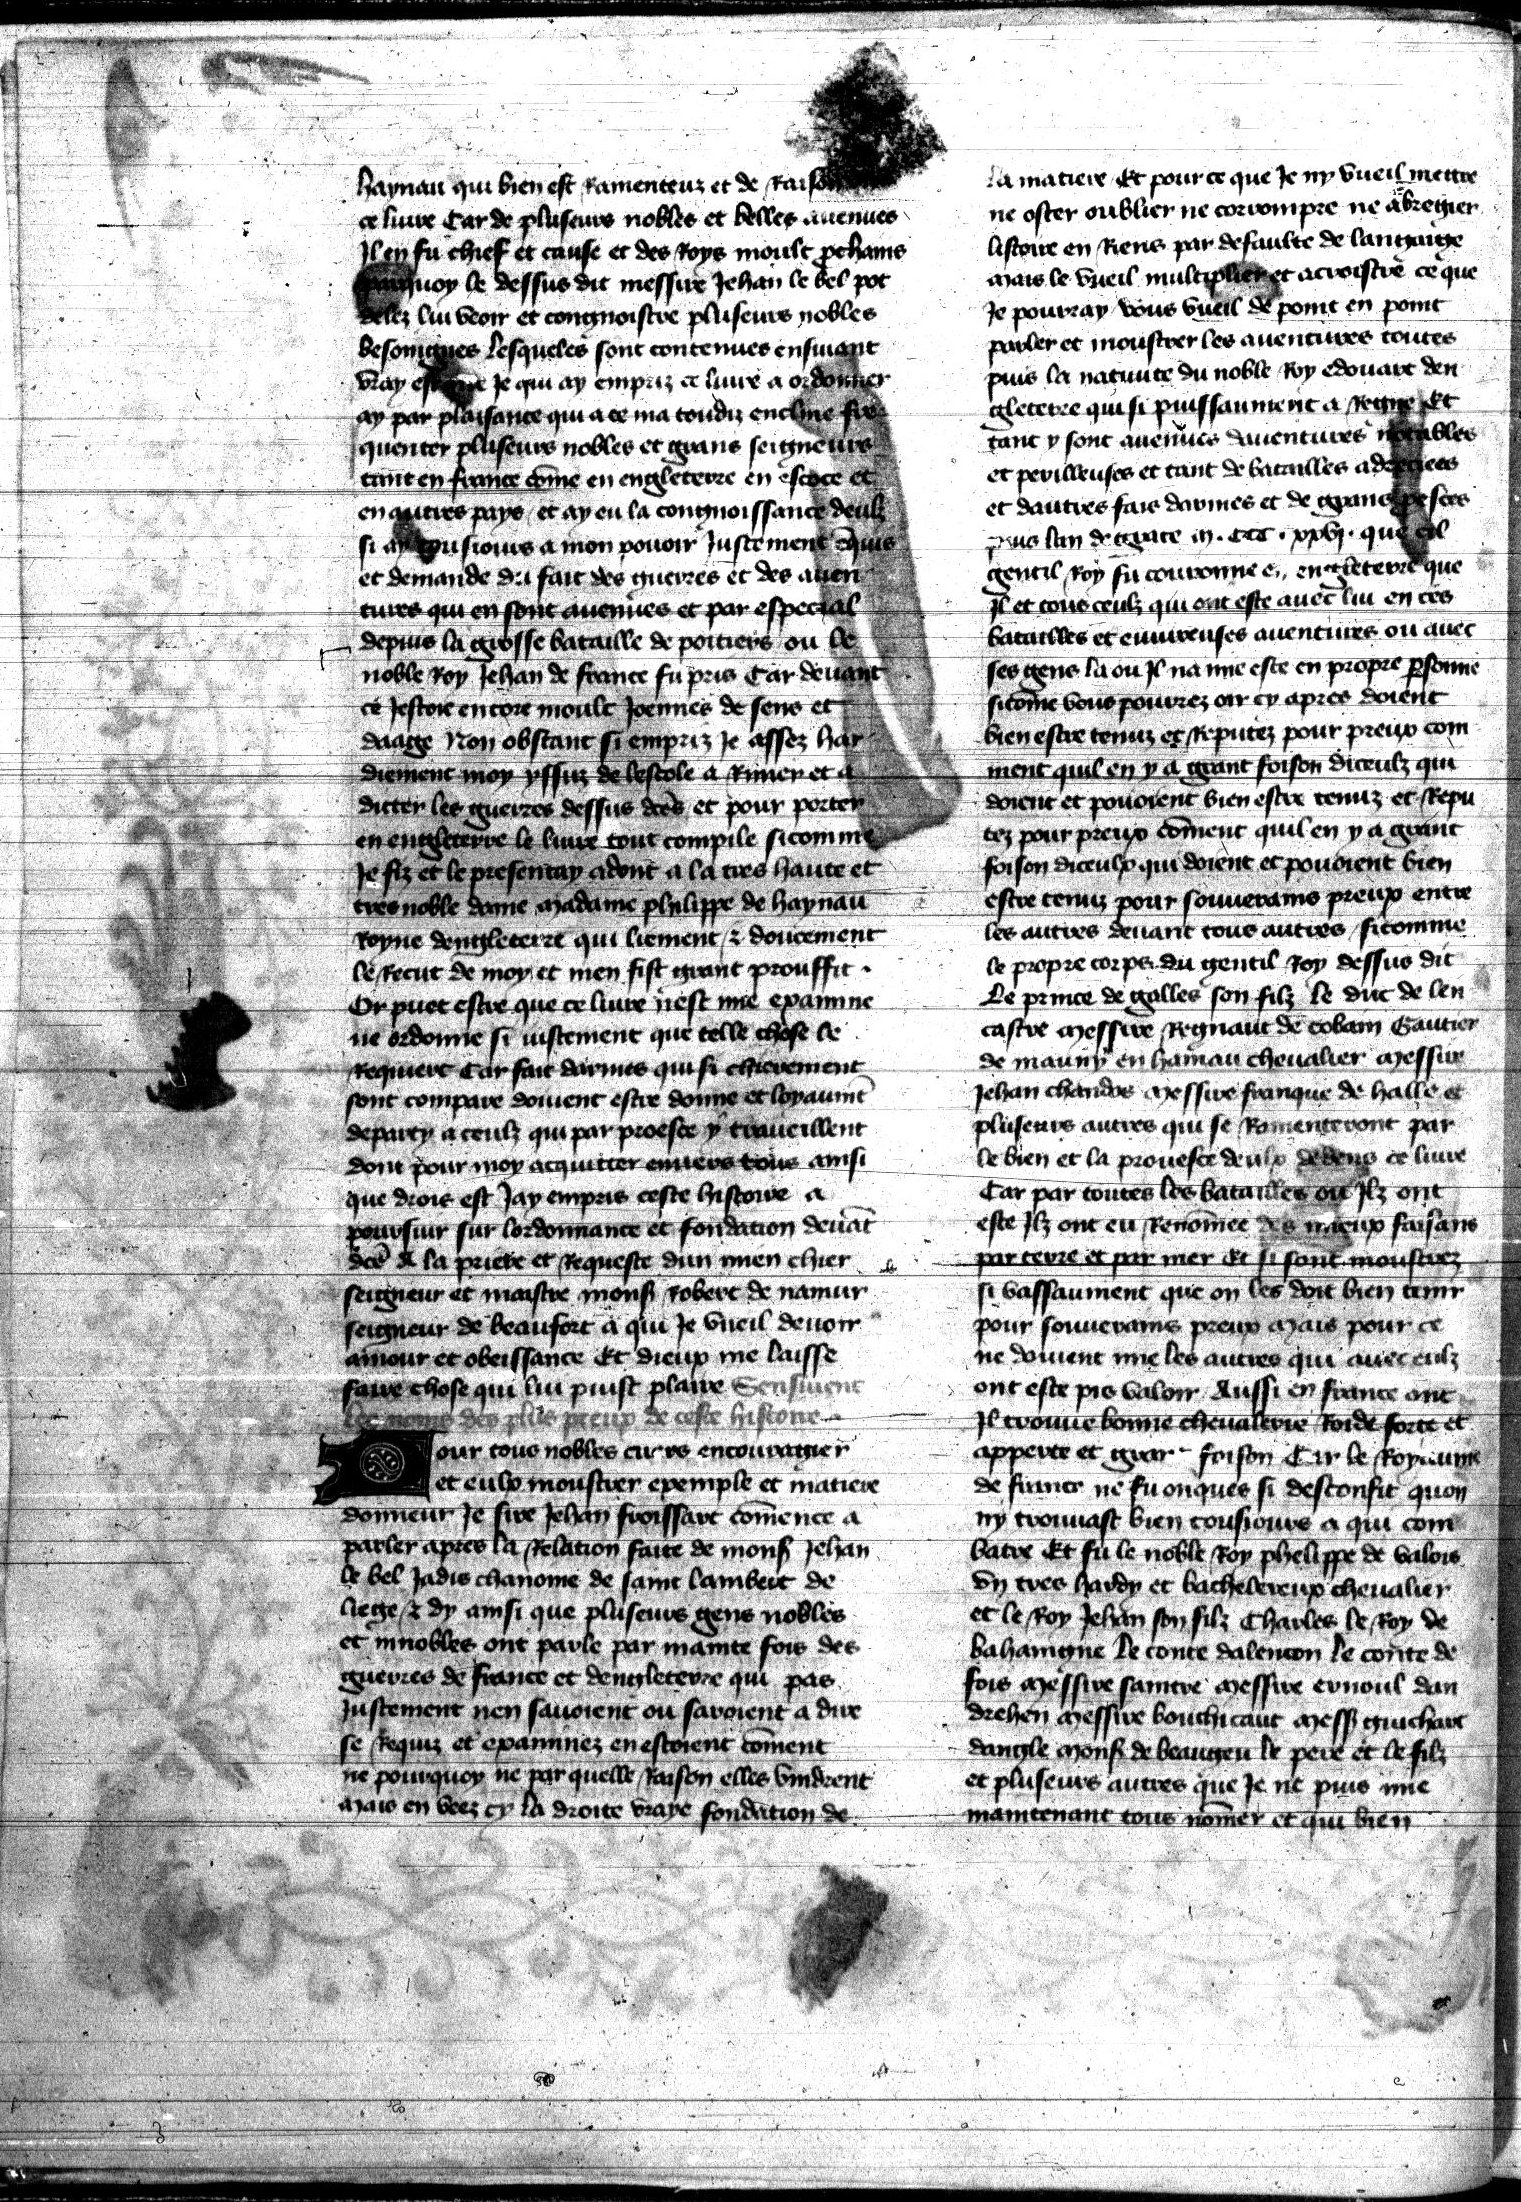 haynau qui bien est ramenteuz et de raison
ce livre Car de pluseurs nobles et belles avenues
Il en fu chief et cause et des Roys moult ꝓchains
parquoy le dessus dit messire Jehan le bel pot
delez lui veoir et congnoistre pluseurs nobles
besoingnes Lesqueles sont contenues ensuivant
vray est que Je qui ay empriz ce livre a ordonner
ay par plaisance qui a ce ma toudiz encline fre
quenter pluseurs nobles et grans seigneurs
tant en france cōme en engleterre en escoce et
en autres pays et ay eu la congnoissance deulz
si ay tousiours a mon povoir Justement enquis
et demande du fait des guerres et des aven
tures qui en sont avenues et par especial
depuis la grosse bataille de poitiers ou le
noble Roy Jehan de france fu pris Car devant
ce Jestoie encore moult Joennes de sens et
daage Non obstant si empriz Je assez har
diement moy yssuz de lescole a Rimer et a
ditter les guerres dessus dc̄es et pour porter
en engleterre le livre tout compile sicomme
Je fiz et le presentay adont a la tres haute et
tres noble dame Madame phelippe de haynau
Royne dengleterre qui liement ⁊ doucement
le Recut de moy et men fist grant prouffit .
Or puet estre que ce livre nest mie examine
ne ordonne si iustement que telle chose le
Requiert Car fait darmes qui si chierement
sont compare doivent estre donne et loyaumt̄
departy a ceulz qui par proesce y traveillent
dont pour moy acquitter envers tous ainsi
que drois est Jay empris ceste histoire a
poursuir sur lordonnance et fondation devāt
dc̄e A la priere et Requeste dun mien chier
seigneur et maistre monsr̄ Robert de namur
seigneur de beaufort a qui Je vueil devoir
amour et obeissance Et dieux me laisse
faire chose qui lui puist plaire Sensuivent
les noms des plus preux de ceste histoire
Pour tous nobles cuers encouragier
et eulx monstrer exemple et matiere
donneur Je sire Jehan froissart cōmence a
parler apres la Relation faite de monsr̄ Jehan
le bel Jadis chanoine de saint lambert de
liege ⁊ dy ainsi que pluseurs gens nobles
et innobles ont parle par mainte fois des
guerres de france et dengleterre qui pas
Justement nen savoient ou saroient a dire
se Requiz et examinez en estoient cōment
ne pourquoy ne par quelle Raison elles vindrent
Mais en veez cy la droite vraye fondation de
la matiere Et pour ce que Je ny vueil mettre
ne oster oublier ne corrompre ne abregier
listoire en Riens par defaulte de langaige
Mais le vueil multiplier et acroistre ce que
Je pourray vous vueil de point en point
parler et moustrer les aventures toutes
puis la nativite du noble Roy edouart den
gleterre qui si puissaument a Regne Et
tant y sont avenues daventures notables
et perilleuses et tant de batailles adreciees
et dautres fais darmes et de grans proesces
puis lan de grace m . ccc . xxvj . que cil
gentil Roy fu couronne en engleterre que
Il et tous ceulz qui ont este avec lui en ces
batailles et eureuses aventures ou avec
ses gens la ou Il na mie este en propre ꝑsonne
sicōme vous pourrez oir cy apres doient
bien estre tenuz et Reputez pour preux com
ment quil en y a grant foison diceulz qui
doient et povoient bien estre tenuz et Repu
tez pour preux cōment quil en y a grant
foison diceulx qui doient et povoient bien
estre tenuz pour souverains preux entre
les autres devant tous autres sicomme
le propre corps du gentil Roy dessus dit
Le prince de galles son filz le duc de len
castre Messire Regnaut de cobam Gautier
de mauny en hainau chevalier Messire
Jehan chandos Messire franque de halle et
pluseurs autres qui se Ramenteront par
le bien et la prouesce deulx dedens ce livre
Car par toutes les batailles ou Ilz ont
este Ilz ont eu Renōmee des mieux faisans
par terre et par mer Et si sont moustrez
si vassaument que on les doit bien tenir
pour souverains preux Mais pour ce
ne doivent mie les autres qui avec eulz
ont este pis valoir Aussi en france ont
Il trouve bonne chevalerie Roide forte et
apperte et grant foison Car le Royaume
de france ne fu onques si desconfit quon
ny trouvast bien tousiours a qui com
batre Et fu le noble Roy phelippe de valois
vn tres hardy et bachelereux chevalier
et le Roy Jehan son filz Charles le Roy de
bahaingne le conte dalencon le conte de
fois Messire saintre Messire ernoul dan
drehen Messire bouchicaut Messr̄ guichart
dangle Monsr̄ de beaugeu le pere et le filz
et pluseurs autres que Je ne puis mie
maintenant tous nōmer et qui bien